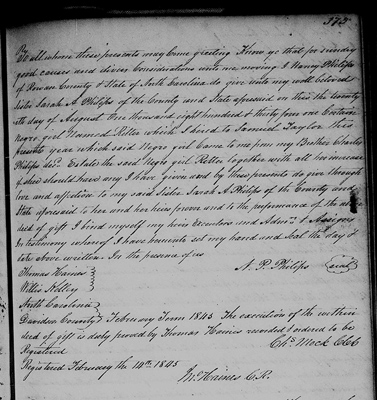 375
To all whom these presents may Come greeting Know ye that for sundry
good causes and divers Considerations unto me moving I Nancy Philips
of Rowan County & State of North Carolina do give unto my well beloved
sister Sarah A Philips of the County and State aforesaid on this the twenty
day of August One thousand eight hundred & thirty four one Certain
negro girl Named Rettee which I hired to Samuel Taylor this
present year which said Negro girl Came to me from my Brother Charles
Philips Estate the said Negro girl Rettee together with all her increase
if she should have any I have given and by these presents do give through
love and affection to my said sister Sarah A Philips of the County and
State aforesaid to her and her heirs forever and to the performance of the
deed of gift I bind myself my heirs Executors and Admrs & Assigns
In testimony whereof I have hereunto set my hand and seal the day &
date above written. In the presence of us
Thomas Haines
N. P. Philips (seal)
Willie Kelley
North Carolina
Davidson County February Term 1845 The execution of the within
deed of gift is duly proved by Thomas Haines recorded & ordered to be
Registered
Chs Mock Clk
Registered February the 14th 1845
Jno Haines C.R.